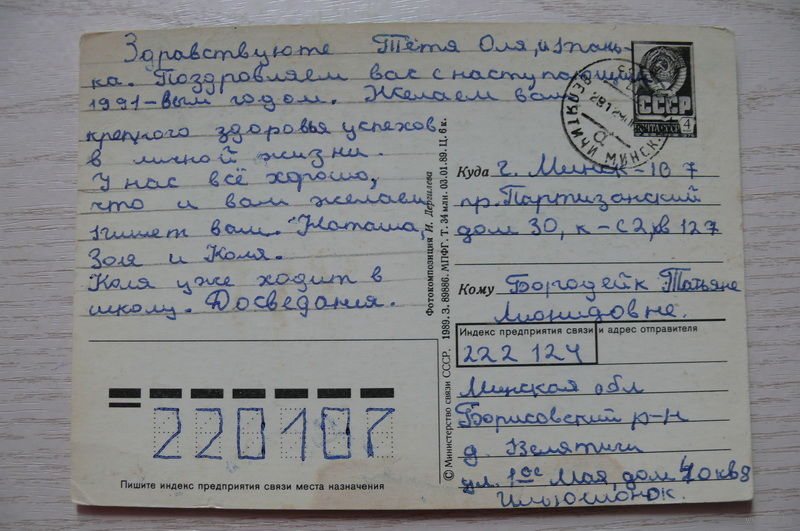 Здравствуюте Тётя Оля, и Тань-
ка. Поздровляем вас с наступающим
1991-вым годом. Желаем вам
крепкого здоровья успехов
в личной жизни.
У нас всё хорошо,
что и вам желаем
пишет вам. Наташа,
Зоя и Коля.
Коля уже ходит в
школу. Досведания.
Фотокомпозиция И. Дергилева
© Министерство связи СССР. 1989. З. 89886. МПФГ. Т. 34 млн. 03.01.89. Ц. 6 к.
СССР
ПОЧТА СССР
4
МИНСК
Куда г. Минск-107
пр. Партизанский
дом 30, к-с2, кв 127
Кому Бородейк Татьяне
Лионидовне.
Индекс предприятия связи и адрес отправителя
222 124
Минская обл
Борисовский р-н
д. Велятичи
ул. 1ое Мая, дом 40 кв 8
220107
Пишите индекс предприятия связи места назначения